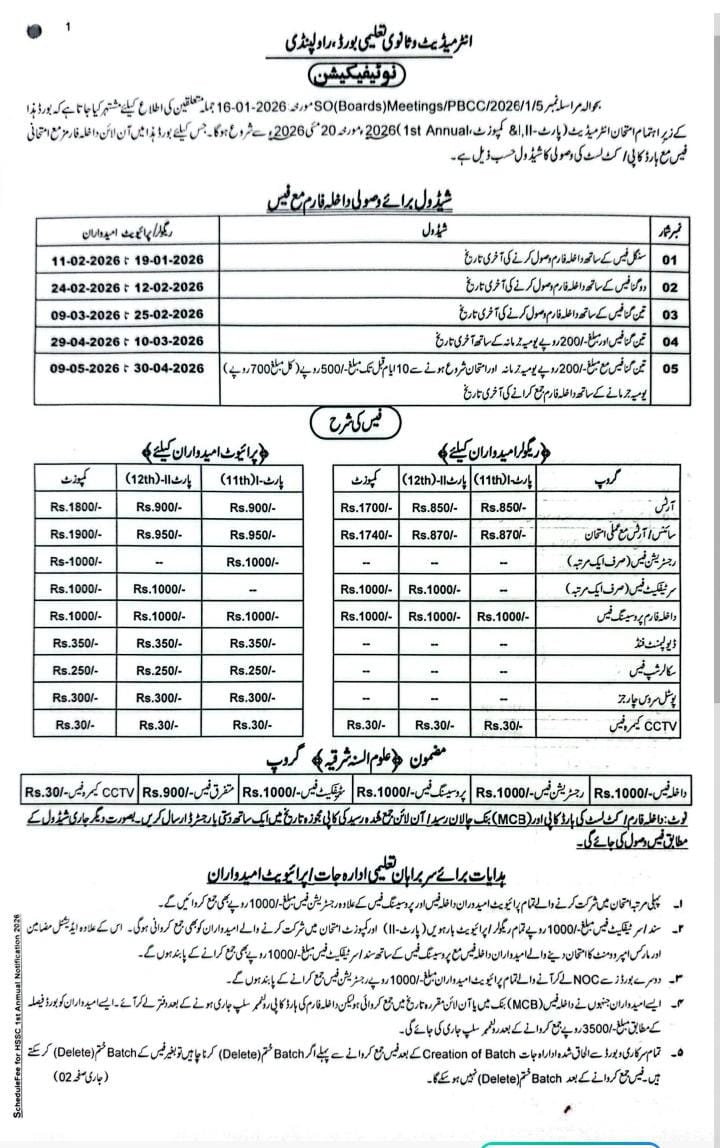 1
انٹرمیڈیٹ و ثانوی تعلیمی بورڈ، راولپنڈی
نوٹیفیکیشن
بحوالہ مراسلہ نمبر SO(Boards)Meetings/PBCC/2026/1/5 مورخہ 16-01-2026 جملہ متعلقین کی اطلاع کیلئے مشتہر کیا جاتا ہے کہ بورڈ ہذا
کے زیر اہتمام امتحان انٹرمیڈیٹ (پارٹ-I,II & کمپوزٹ، 1st Annual) 2026، مورخہ 20 مئی 2026ء سے شروع ہوگا۔ جس کیلئے بورڈ ہذا میں آن لائن داخلہ فارمز مع امتحانی
فیس مع ہارڈ کاپی/کٹ لسٹ کی وصولی کا شیڈول حسب ذیل ہے۔
شیڈول برائے وصولی داخلہ فارم مع فیس
نمبر شمار شیڈول ریگولر/پرائیویٹ امیدواران
01 سنگل فیس کے ساتھ داخلہ فارم وصول کرنے کی آخری تاریخ 19-01-2026 تا 11-02-2026
02 دوگنا فیس کے ساتھ داخلہ فارم وصول کرنے کی آخری تاریخ 12-02-2026 تا 24-02-2026
03 تین گنا فیس کے ساتھ داخلہ فارم وصول کرنے کی آخری تاریخ 25-02-2026 تا 09-03-2026
04 تین گنا فیس اور مبلغ -/200 روپے یومیہ جرمانہ کے ساتھ آخری تاریخ 10-03-2026 تا 29-04-2026
05 تین گنا فیس مع مبلغ -/200 روپے یومیہ جرمانہ اور امتحان شروع ہونے سے 10 ایام قبل تک مبلغ -/500 روپے (کل مبلغ 700 روپے) 30-04-2026 تا 09-05-2026
یومیہ جرمانے کے ساتھ داخلہ فارم جمع کرانے کی آخری تاریخ
فیس کی شرح
﴿ریگولر امیدواران کیلئے﴾ ﴿پرائیویٹ امیدواران کیلئے﴾
گروپ پارٹ-I(11th) پارٹ-II(12th) کمپوزٹ پارٹ-I(11th) پارٹ-II(12th) کمپوزٹ
آرٹس Rs.850/- Rs.850/- Rs.1700/- Rs.900/- Rs.900/- Rs.1800/-
سائنس/آرٹس مع عملی امتحان Rs.870/- Rs.870/- Rs.1740/- Rs.950/- Rs.950/- Rs.1900/-
رجسٹریشن فیس (صرف ایک مرتبہ) -- -- -- Rs.1000/- -- Rs-1000/-
سرٹیفکیٹ فیس (صرف ایک مرتبہ) -- Rs.1000/- Rs.1000/- -- Rs.1000/- Rs.1000/-
داخلہ فارم پروسیسنگ فیس Rs.1000/- Rs.1000/- Rs.1000/- Rs.1000/- Rs.1000/- Rs.1000/-
ڈیولپمنٹ فنڈ -- -- -- Rs.350/- Rs.350/- Rs.350/-
سکالرشپ فیس -- -- -- Rs.250/- Rs.250/- Rs.250/-
پوسٹل سروس چارجز -- -- -- Rs.300/- Rs.300/- Rs.300/-
CCTV کیمرہ فیس Rs.30/- Rs.30/- Rs.30/- Rs.30/- Rs.30/- Rs.30/-
مضمون ﴿علوم السنہ شرقیہ﴾ گروپ
داخلہ فیس Rs.1000/- رجسٹریشن فیس Rs.1000/- پروسیسنگ فیس Rs.1000/- سرٹیفکیٹ فیس Rs.1000/- متفرق فیس Rs.900/- CCTV کیمرہ فیس Rs.30/-
نوٹ: داخلہ فارم/کٹ لسٹ کی ہارڈ کاپی اور (MCB) بنک چالان رسید/آن لائن جمع شدہ رسید کی کاپی مجوزہ تاریخ میں ایک ساتھ دستی یا رجسٹرڈ ارسال کریں۔ بصورت دیگر جاری شیڈول کے
مطابق فیس وصول کی جائے گی۔
ہدایات برائے سربراہان تعلیمی ادارہ جات/پرائیویٹ امیدواران
۱۔ پہلی مرتبہ امتحان میں شرکت کرنے والے تمام پرائیویٹ امیدواران داخلہ فیس اور پروسیسنگ فیس کے علاوہ رجسٹریشن فیس مبلغ -/1000 روپے بھی جمع کروائیں گے۔
۲۔ سند/سرٹیفکیٹ فیس مبلغ -/1000 روپے تمام ریگولر/پرائیویٹ بارہویں (پارٹ-II) اور کمپوزٹ امتحان میں شرکت کرنے والے امیدواران کو بھی جمع کروانی ہوگی۔ اس کے علاوہ ایڈیشنل مضامین
اور مارکس امپروومنٹ کا امتحان دینے والے امیدواران داخلہ فیس مع پروسیسنگ فیس کے ساتھ سند/سرٹیفکیٹ فیس مبلغ -/1000 روپے بھی جمع کرانے کے پابند ہوں گے۔
۳۔ دوسرے بورڈز سے NOC لے کر آنے والے تمام پرائیویٹ امیدواران مبلغ -/1000 روپے رجسٹریشن فیس جمع کرانے کے پابند ہوں گے۔
۴۔ ایسے امیدواران جنہوں نے داخلہ فیس (MCB) بنک میں یا آن لائن مقررہ تاریخ میں جمع کروائی ہو لیکن داخلہ فارم کی ہارڈ کاپی رولنمبر سلپ جاری ہونے کے بعد دفتر لے کر آئے۔ ایسے امیدواران کو بورڈ فیصلہ
کے مطابق مبلغ -/3500 روپے جمع کروانے کے بعد رولنمبر سلپ جاری کی جائے گی۔
۵۔ تمام سرکاری و بورڈ سے الحاق شدہ ادارہ جات Creation of Batch کے بعد فیس جمع کروانے سے پہلے اگر Batch ختم (Delete) کرنا چاہیں تو بغیر فیس کے Batch ختم (Delete) کر سکتے
ہیں۔ فیس جمع کروانے کے بعد Batch ختم (Delete) نہیں ہو سکے گا۔ (جاری صفحہ 02)
ScheduleFee for HSSC 1st Annual Notification 2026